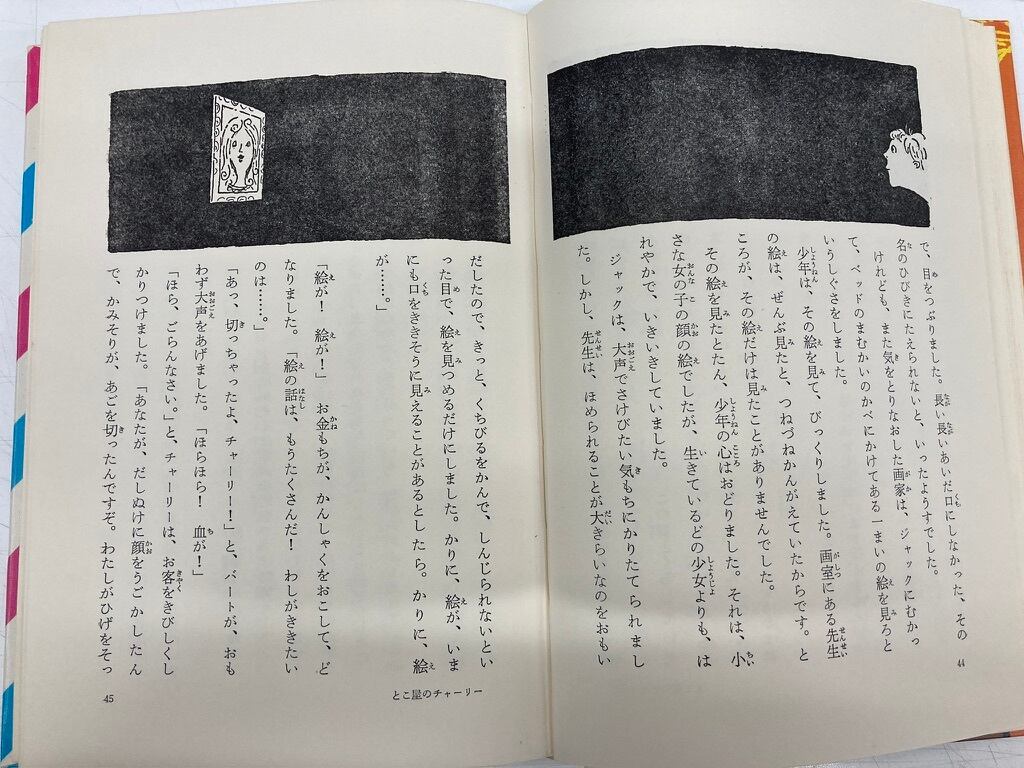 で、目をつぶりました。長い長いあいだ口にしなかった、その
名のひびきにたえられないと、いったようすでした。
けれども、また気をとりなおした画家は、ジャックにむかっ
て、ベッドのまむかいのかべにかけてある一まいの絵を見ろと
いうしぐさをしました。
少年は、その絵を見て、びっくりしました。画室にある先生
の絵は、ぜんぶ見たと、つねづねかんがえていたからです。と
ころが、その絵だけは見たことがありませんでした。
その絵を見たとたん、少年の心はおどりました。それは、小
さな女の子の顔の絵でしたが、生きているどの少女よりも、は
れやかで、いきいきしていました。
ジャックは、大声でさけびたい気もちにかりたてられまし
た。しかし、先生は、ほめられることが大きらいなのをおもい
44
だしたので、きっと、くちびるをかんで、しんじられないとい
った目で、絵を見つめるだけにしました。かりに、絵が、いま
にも口をききそうに見えることがあるとしたら。かりに、絵
が……。」
「絵が! 絵が!」 お金もちが、かんしゃくをおこして、ど
なりました。「絵の話は、もうたくさんだ! わしがききたい
のは……。」
「あっ、切っちゃったよ、チャーリー!」と、バートが、おも
わず大声をあげました。「ほらほら! 血が!」
「ほら、ごらんなさい。」と、チャーリーは、お客をきびしくし
かりつけました。「あなたが、だしぬけに顔をうごかしたん
で、かみそりが、あごを切ったんですぞ。わたしがひげをそっ
とこ屋のチャーリー
45